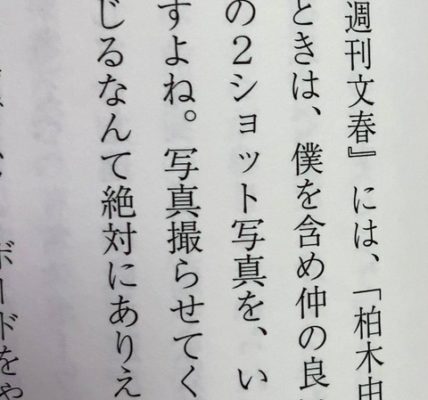 週刊文春』には、「柏木由
ときは、僕を含め仲の良
の2ショット写真を、い
すよね。写真撮らせてく
じるなんて絶対にありえ
ボードをや